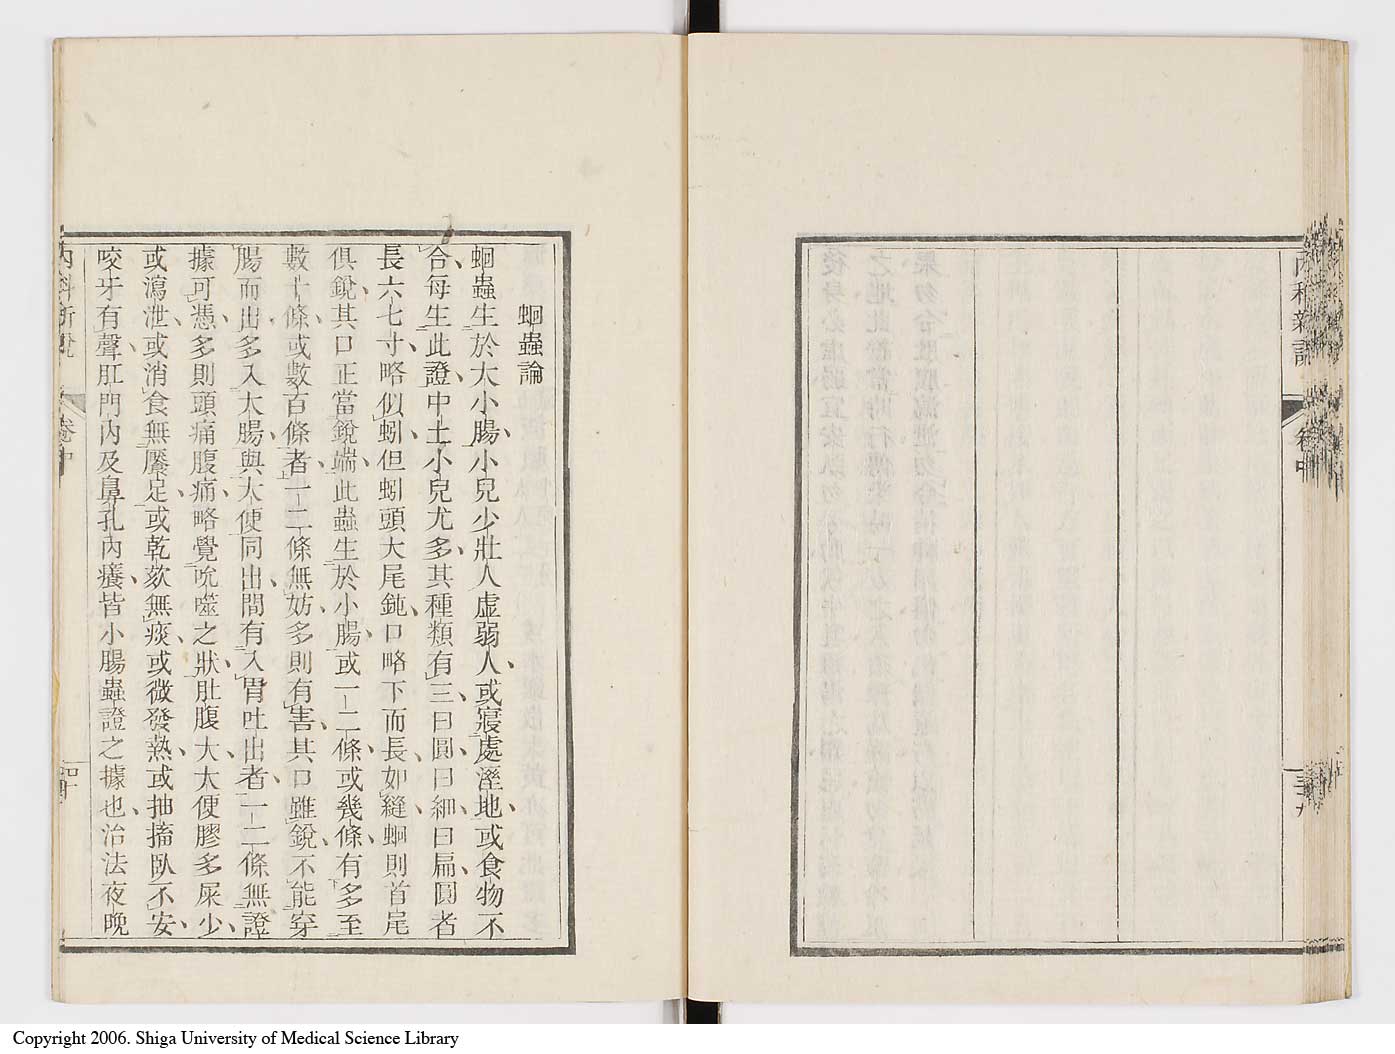 內科新說
卷中
三十九
蛔蟲論
蛔蟲生於大小腸小兒少壯人虛弱人或寢處溼地或食物不
合每生此證中土小兒尤多其種類有三曰圓曰細曰扁圓者
長六七寸略似蚓但蚓頭大尾鈍口略下而長如縫蛔則首尾
俱銳其口正當銳端此蟲生於小腸或一二條或幾條有多至
數十條或數百條者一二條無妨多則有害其口雖銳不能穿
腸而出多入大腸與大便同出間有入胃吐出者一二條無證
據可憑多則頭痛腹痛略覺吮噬之狀肚腹大大便膠多屎少
或瀉泄或消食無饜足或乾欬無痰或微發熱或抽搐臥不安
咬牙有聲肛門內及鼻孔內癢皆小腸蟲證之據也治法夜晚
內科新說
卷中
四十
Copyright 2006. Shiga University of Medical Science Library